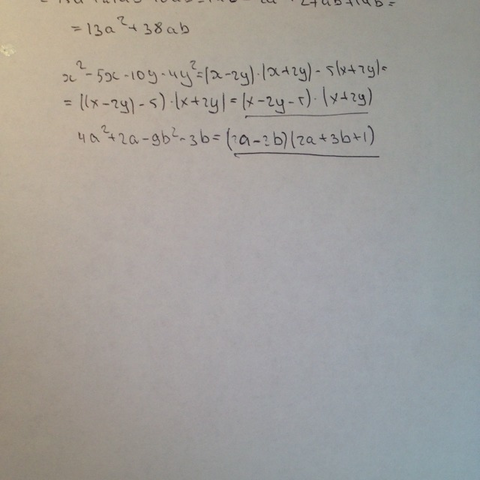 = 13a²+38ab
x²-5x-10y-4y²=(x-2y)·(x+2y)-5(x+2y)=
=((x-2y)-5)·(x+2y)=(x-2y-5)·(x+2y)
4a²+2a-9b²-3b=(2a-3b)(2a+3b+1)